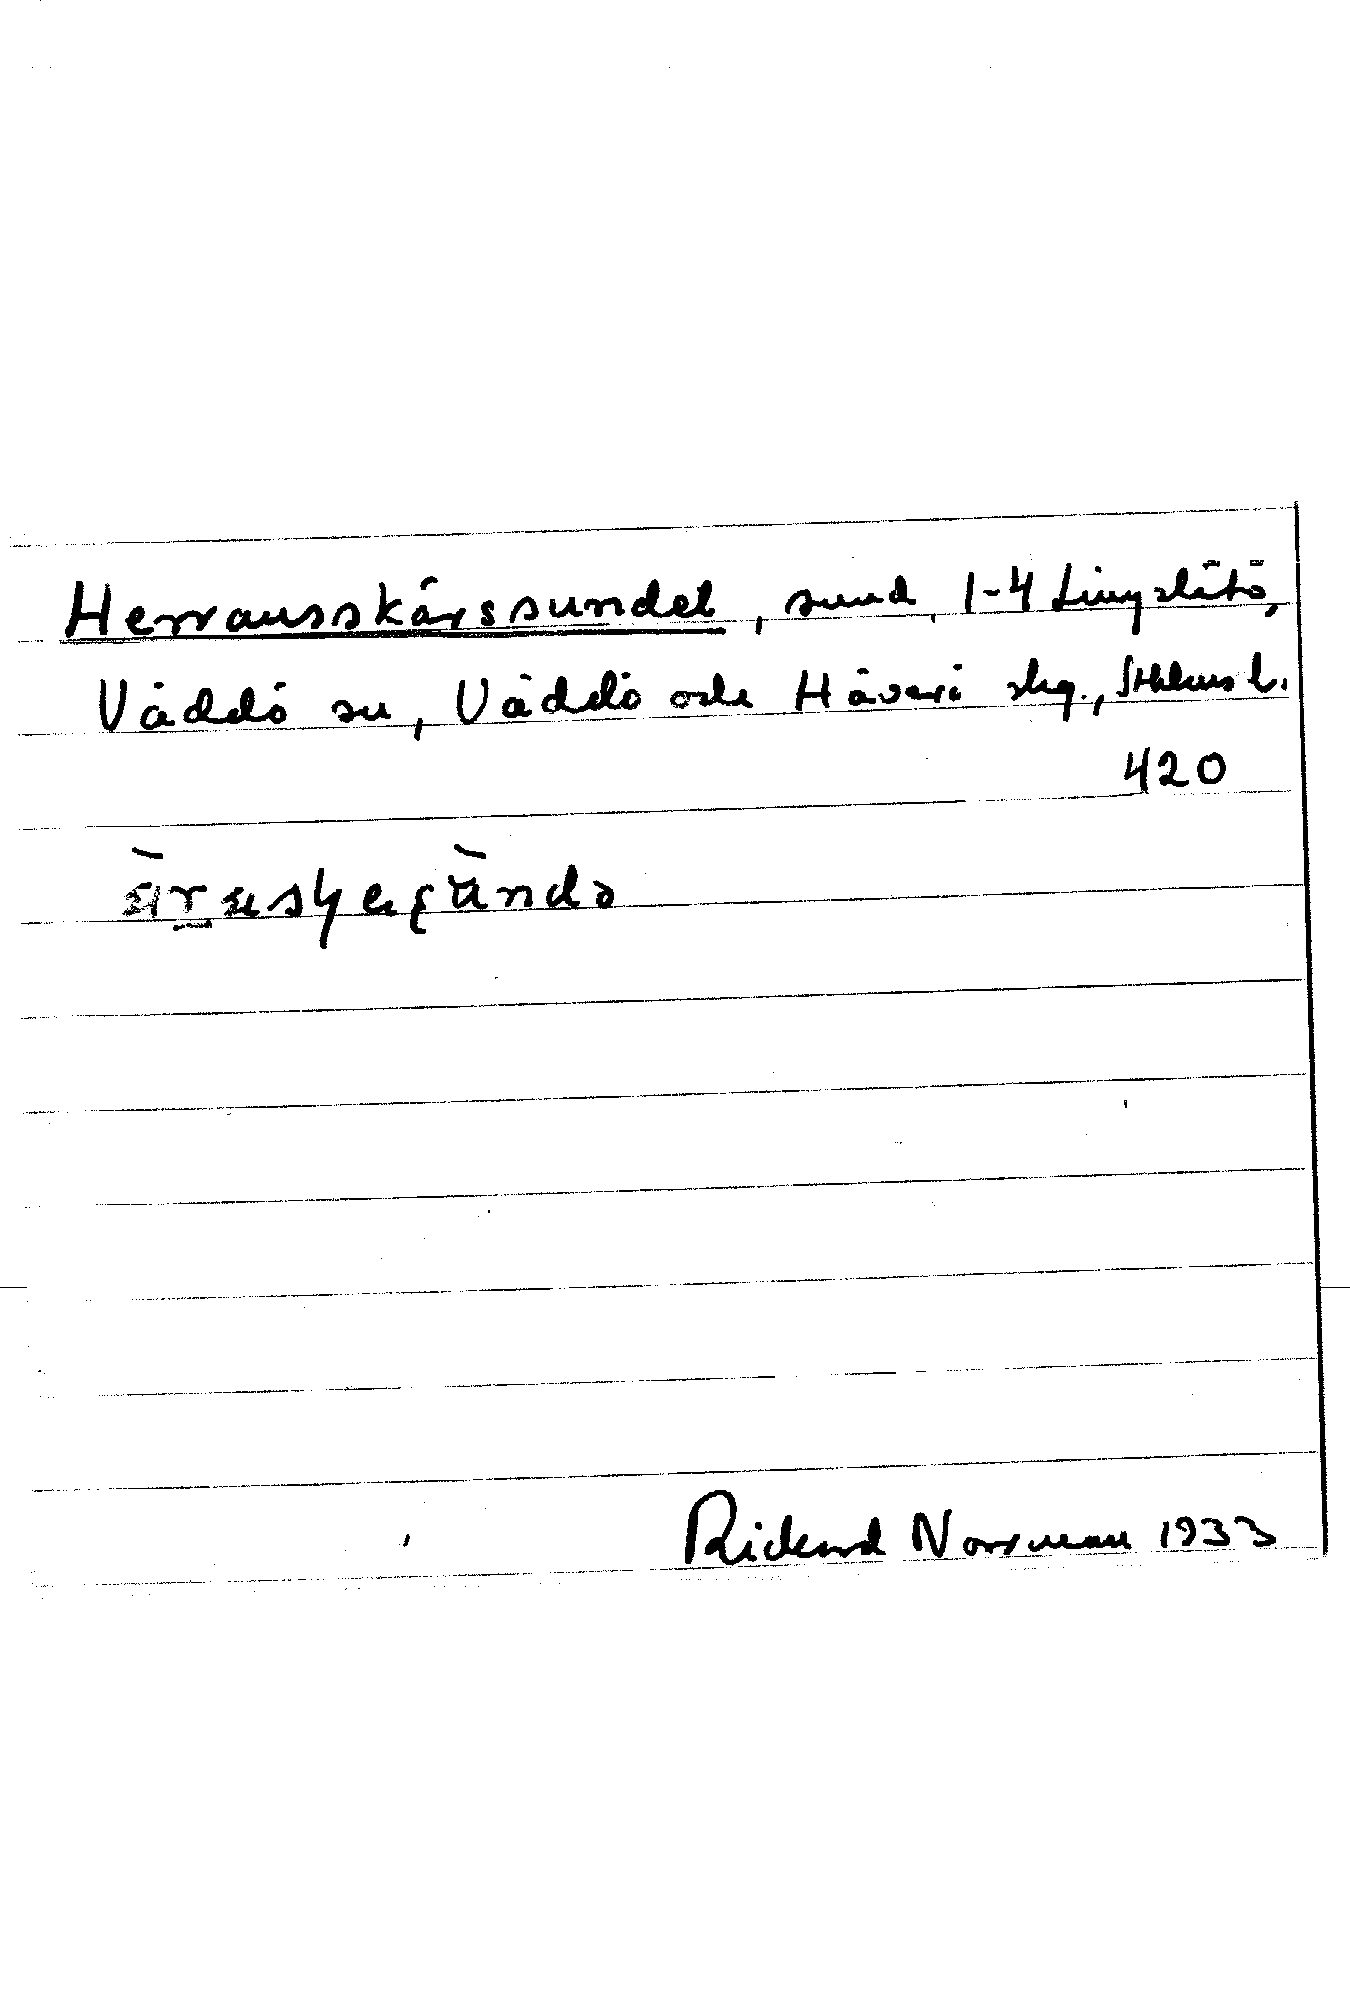 Herransskärssundet, sund, 1-4 Lingslätö,
Väddö sn, Väddö och Häverö skg., Sthlms l.
420
Rickard Norrman 1933